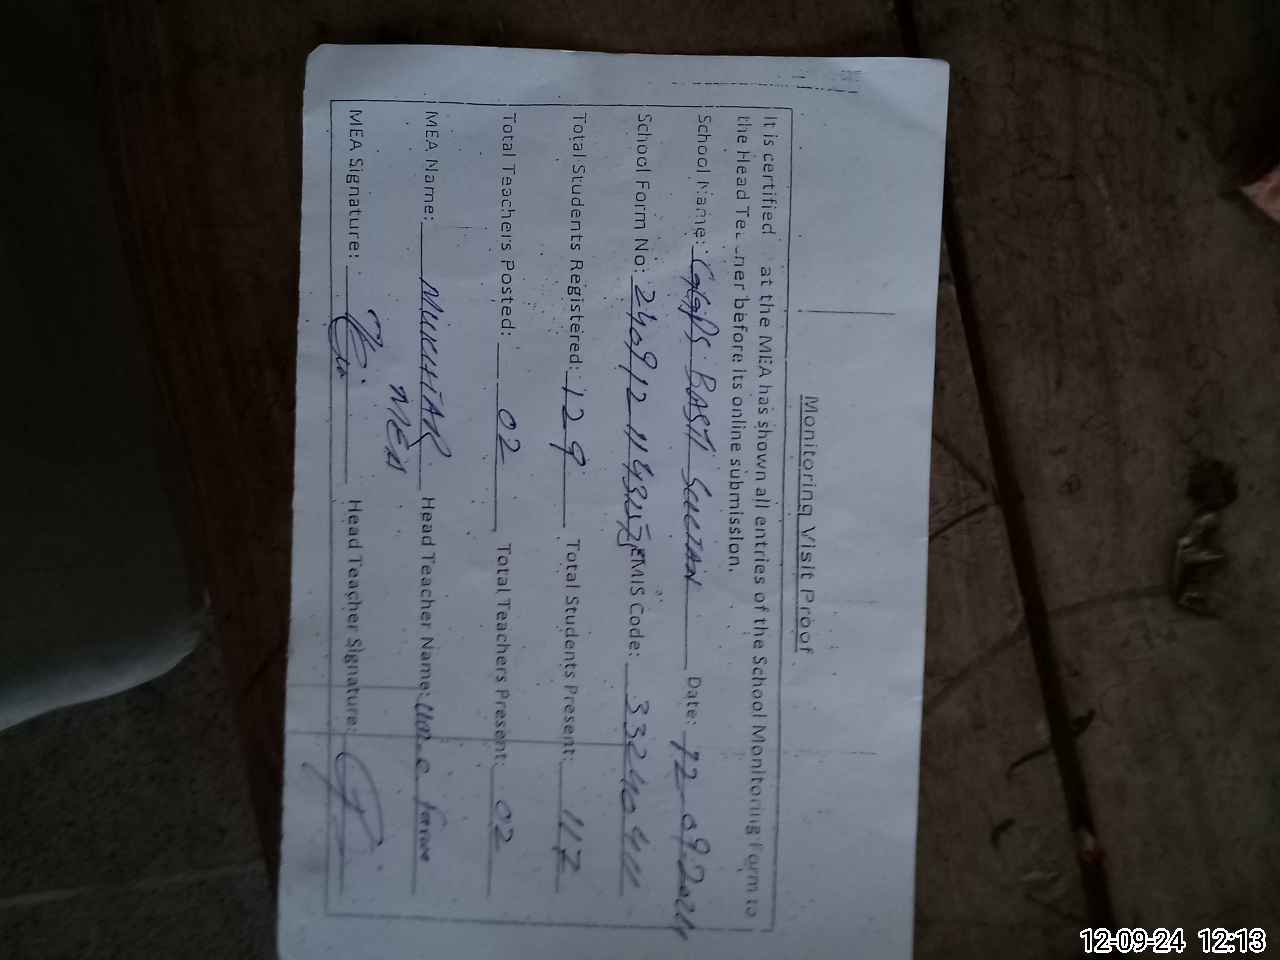 Monitoring Visit Proof
It is certified at the MEA has shown all entries of the School Monitoring Form to
the Head Te ner before its online submission.
School Name: GGPS BASTI SULTAN Date: 12-09-2024
School Form No: EMIS Code: 33240411
Total Students Registered: 129 Total Students Present: 117
Total Teachers Posted: 02 Total Teachers Present: 02
MEA Name: MUKHTAR Head Teacher Name:
MEA
MEA Signature: Head Teacher Signature:
12-09-24 12:13